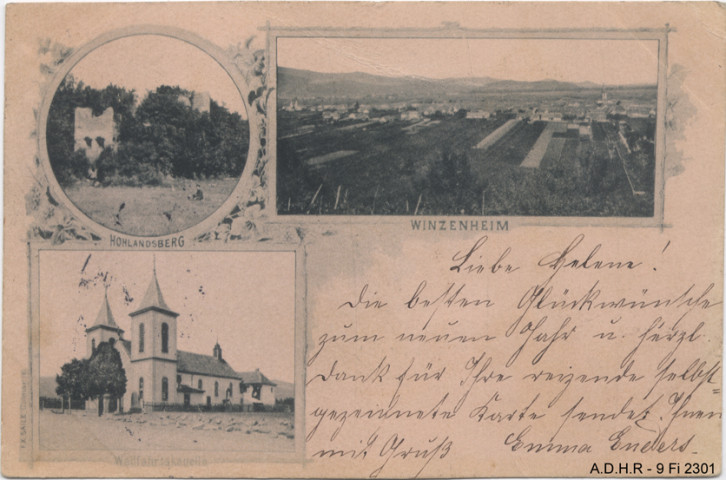 HOHLANDSBERG
WINZENHEIM
Liebe Helene!
Die besten Glückwünsche
zum neuen Jahr u. herzl.
Dank für Ihre reizende selbst=
gezeichnete Karte sendet Ihnen
mit Gruß Emma Enders.
Wallfahrtskapelle
A.D.H.R - 9 Fi 2301